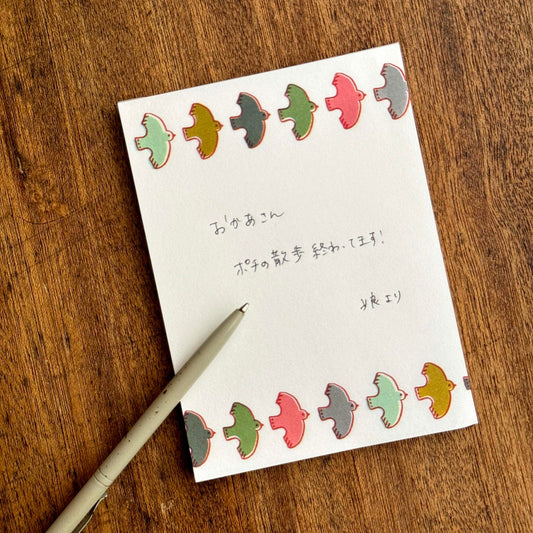 おかあさん
ポチの散歩 終わってます!
娘より